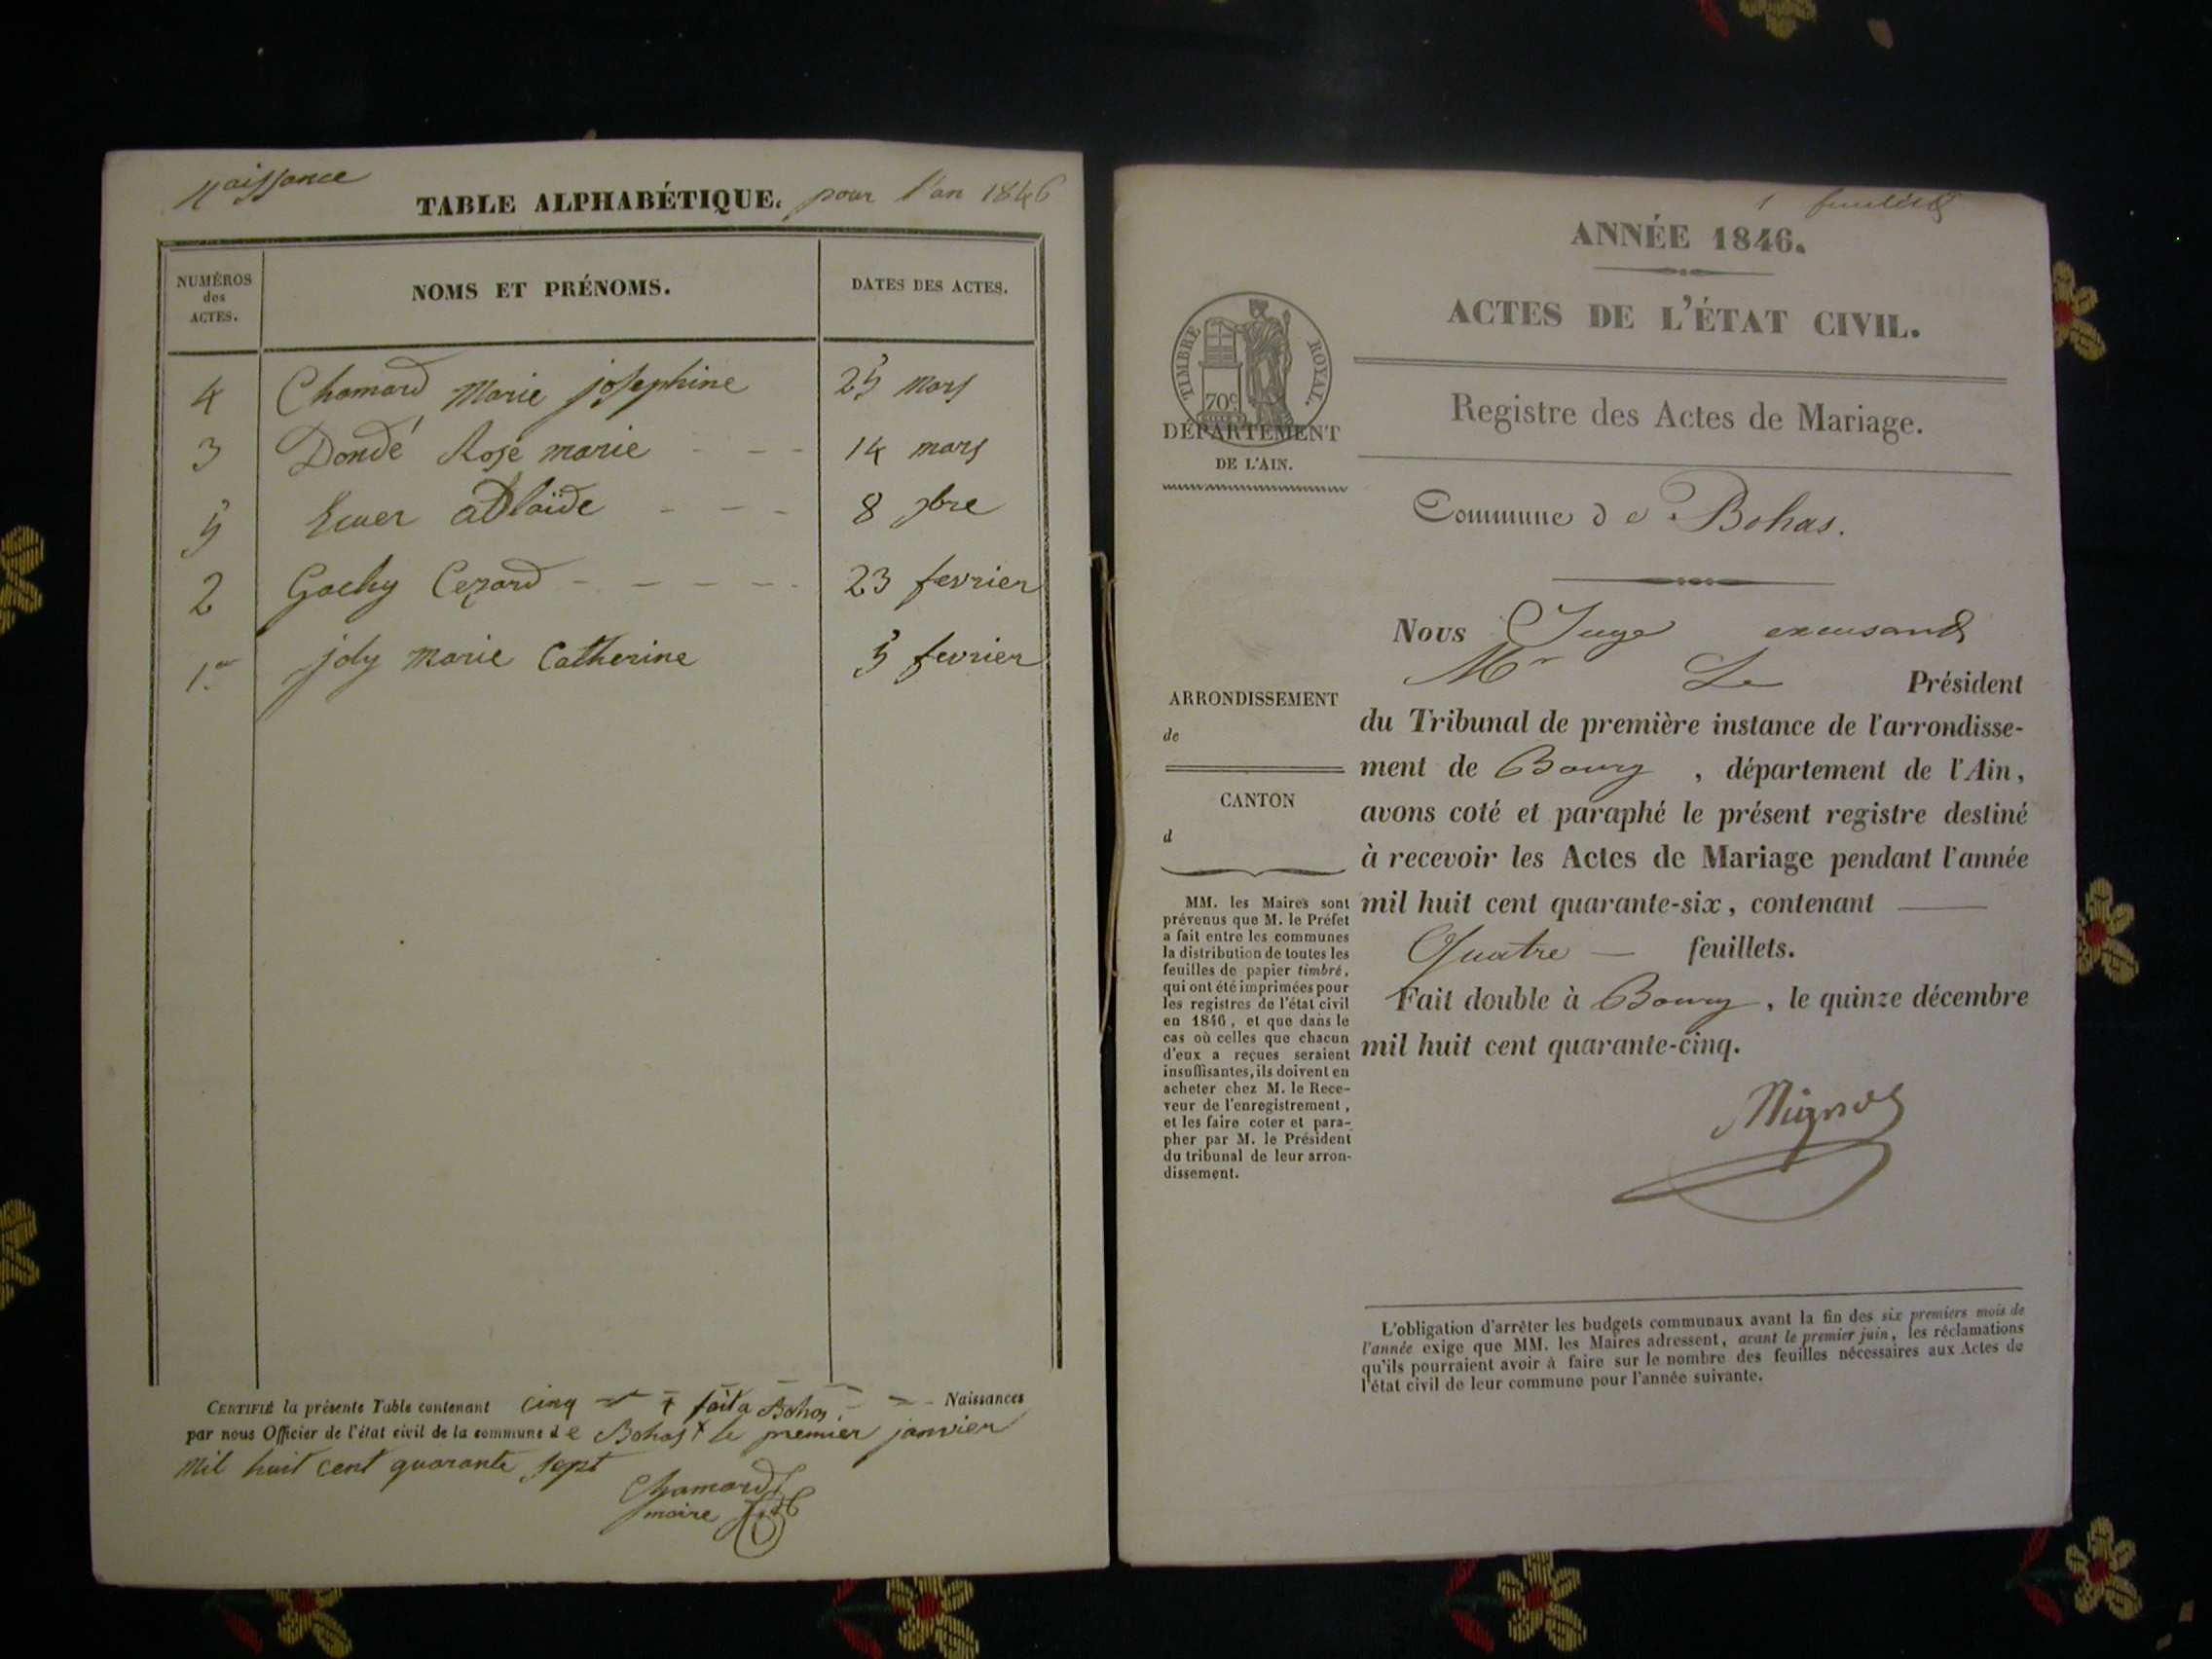 Naissance
TABLE ALPHABÉTIQUE. pour l'an 1846
NUMÉROS des ACTES.
NOMS ET PRÉNOMS.
DATES DES ACTES.
4 Chamard Marie josephine 25 mars
3 Dondé Rose marie - - - 14 mars
5 adlaïde - - - 8 9bre
2 Gachy Cezard - - - - - 23 fevrier
1er joly marie Catherine 5 fevrier
CERTIFIÉ la présente Table contenant cinq fait a Bohas Naissances
par nous Officier de l'état civil de la commune de Bohas le premier janvier
mil huit cent quarante sept
Chamard
maire
1 feuillet
ANNÉE 1846.
ACTES DE L'ÉTAT CIVIL.
TIMBRE ROYAL.
70c
DÉPARTEMENT
DE L'AIN.
Registre des Actes de Mariage.
Commune de Bohas.
ARRONDISSEMENT
de
CANTON
d
MM. les Maires sont
prévenus que M. le Préfet
a fait entre les communes
la distribution de toutes les
feuilles de papier timbré,
qui ont été imprimées pour
les registres de l'état civil
en 1846, et que dans le
cas où celles que chacun
d'eux a reçues seraient
insuffisantes, ils doivent en
acheter chez M. le Rece-
veur de l'enregistrement,
et les faire coter et para-
pher par M. le Président
du tribunal de leur arron-
dissement.
Nous Juge
Mr Le Président
du Tribunal de première instance de l'arrondisse-
ment de Bourg, département de l'Ain,
avons coté et paraphé le présent registre destiné
à recevoir les Actes de Mariage pendant l'année
mil huit cent quarante-six, contenant
Quatre — feuillets.
Fait double à Bourg, le quinze décembre
mil huit cent quarante-cinq.
L'obligation d'arrêter les budgets communaux avant la fin des six premiers mois de
l'année exige que MM. les Maires adressent, avant le premier juin, les réclamations
qu'ils pourraient avoir à faire sur le nombre des feuilles nécessaires aux Actes de
l'état civil de leur commune pour l'année suivante.